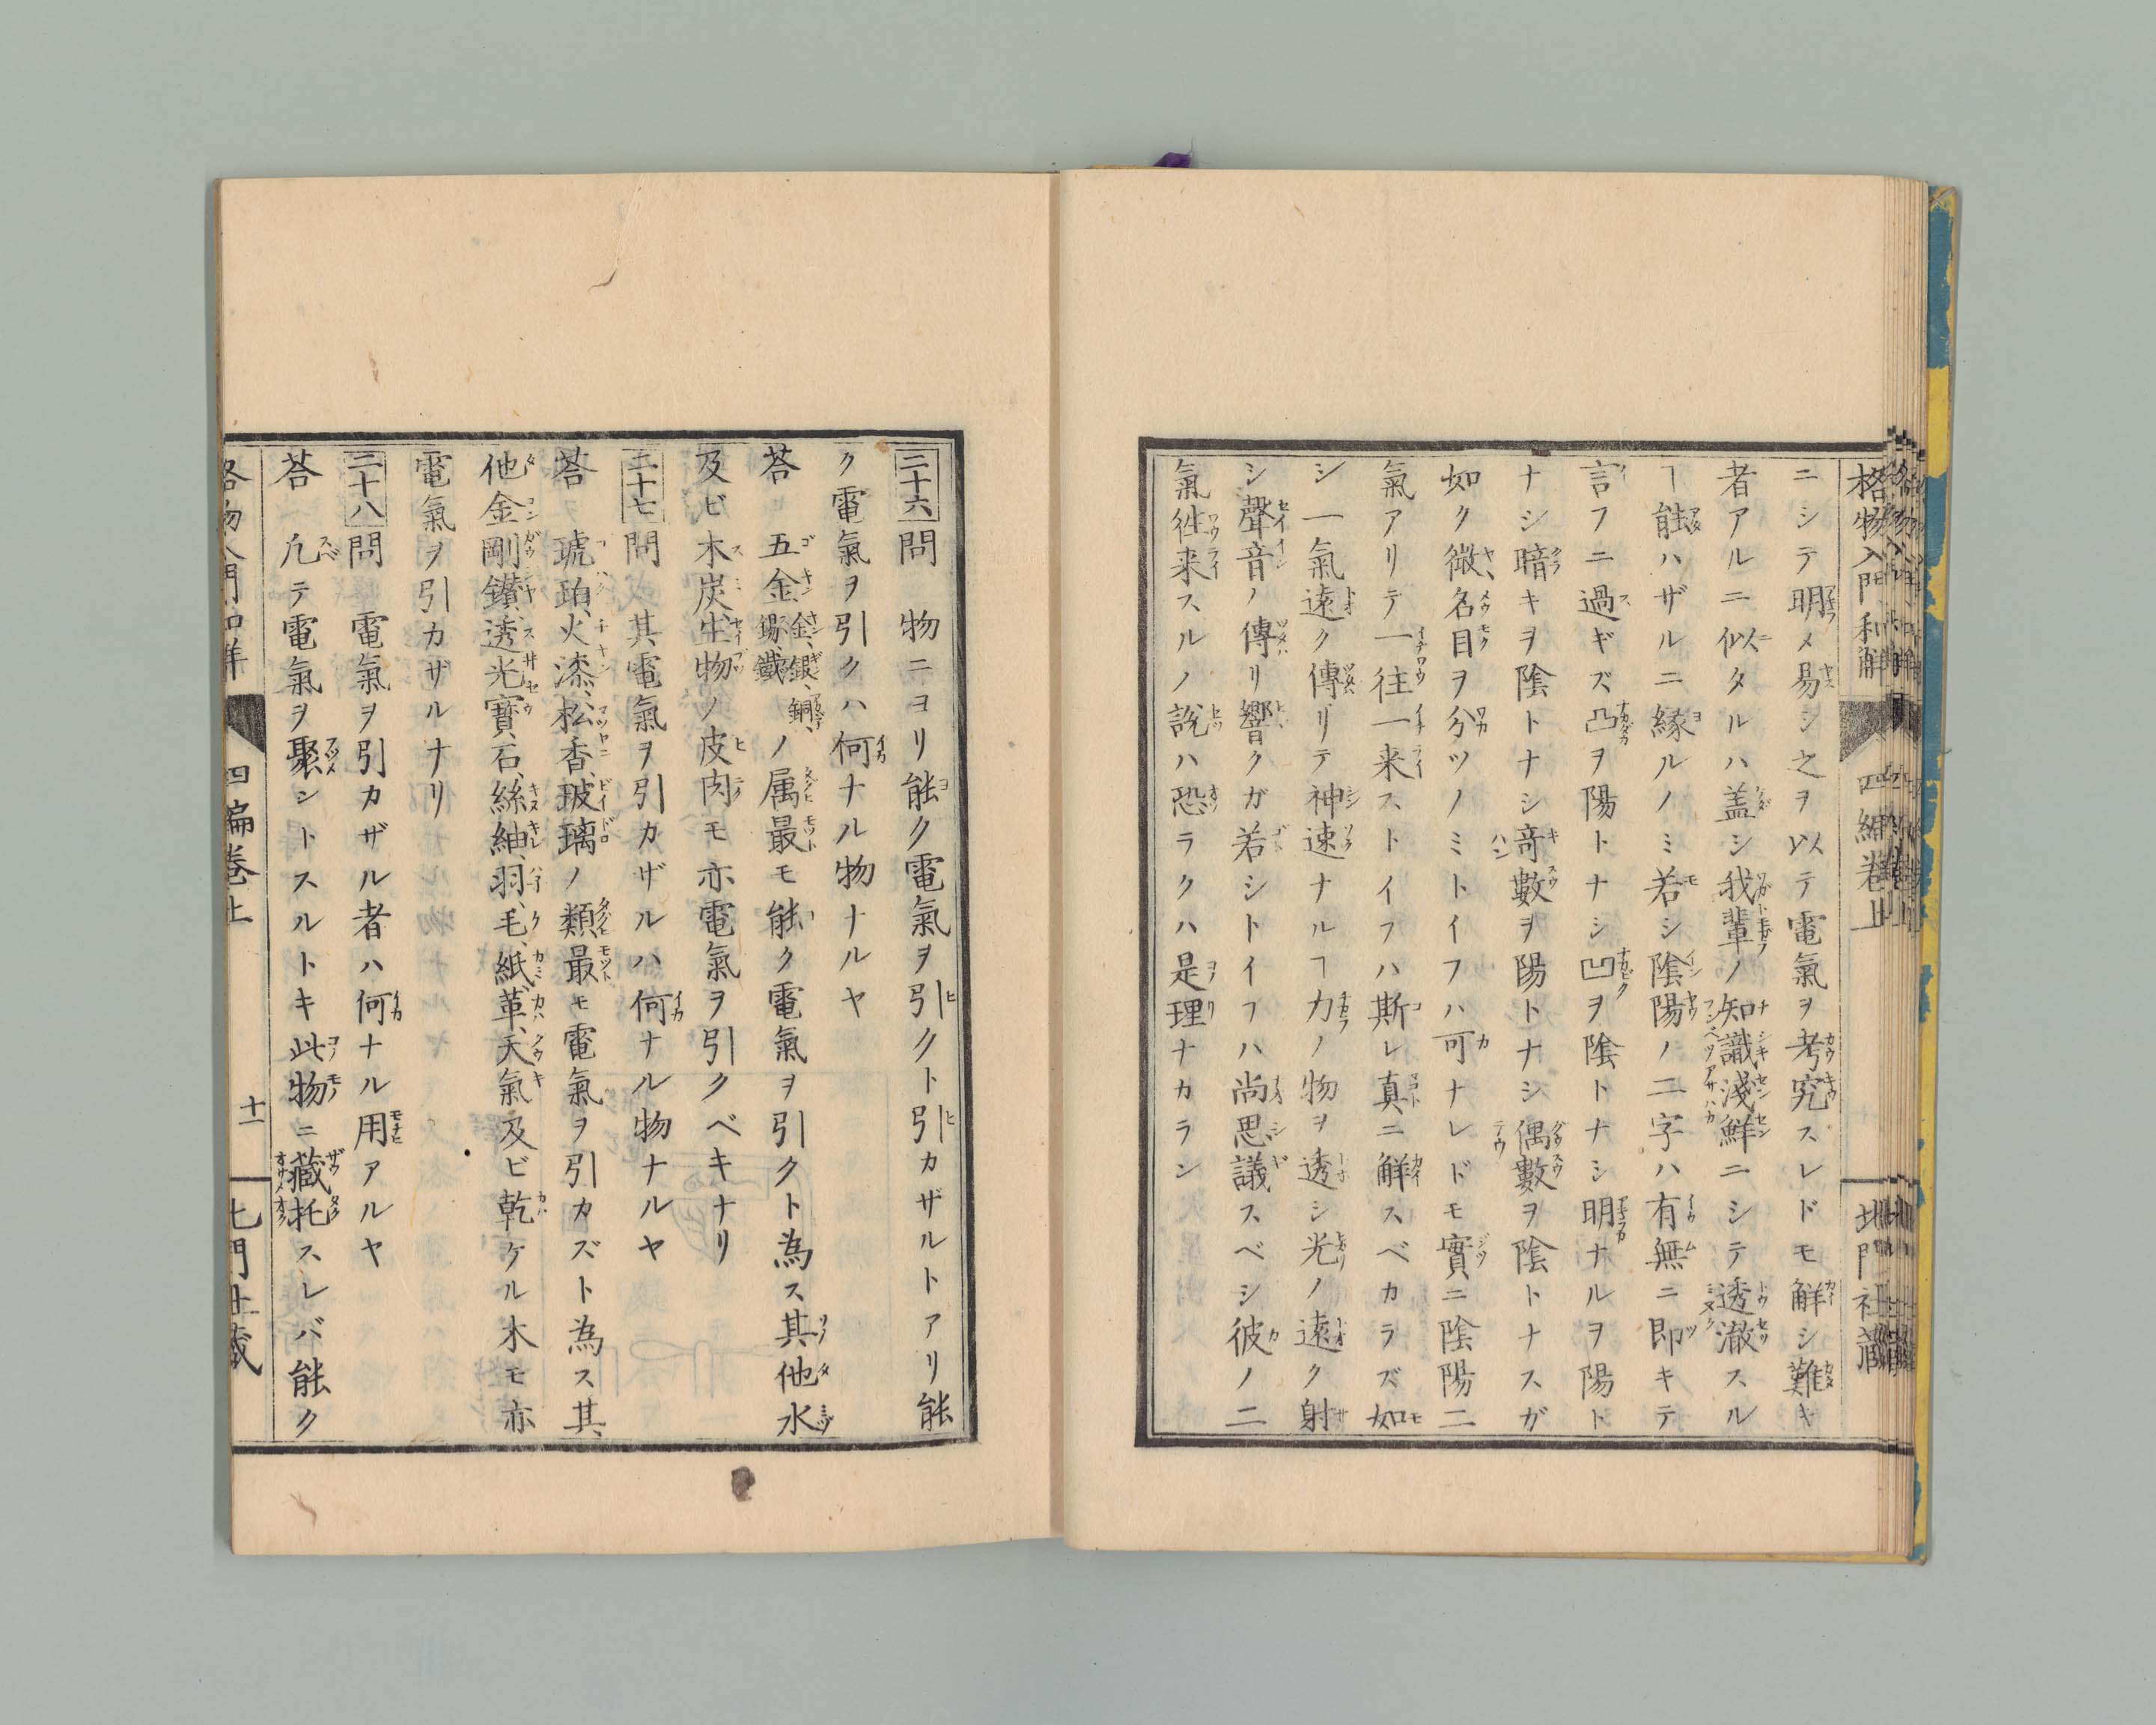 格物入門和解 四編卷上 北門社藏
ニシテ明メ易シ之ヲ以テ電氣ヲ考究スレドモ解シ難キ
者アルニ似タルハ蓋シ我輩ノ知識淺鮮ニシテ透澈スル
ヿ能ハザルニ縁ルノミ若シ陰陽ノ二字ハ有無ニ即キテ
言フニ過ギズ凸ヲ陽トナシ凹ヲ陰トナシ明ナルヲ陽ト
ナシ暗キヲ陰トナシ竒數ヲ陽トナシ偶數ヲ陰トナスガ
如ク微名目ヲ分ツノミトイフハ可ナレドモ實ニ陰陽二
氣アリテ一往一来ストイフハ斯レ真ニ解スベカラズ如
シ一氣遠ク傳リテ神速ナルヿ力ノ物ヲ透シ光ノ遠ク射
シ聲音ノ傳リ響クガ若シトイフハ尚思議スベシ彼ノ二
氣徃来スルノ説ハ恐ラクハ是理ナカラン
二十六問 物ニヨリ能ク電氣ヲ引クト引カザルトアリ能
ク電氣ヲ引クハ何ナル物ナルヤ
荅 五金金、銀、銅、錫、鐵ノ属最モ能ク電氣ヲ引クト為ス其他水
及ビ木炭、生物ノ皮肉モ亦電氣ヲ引クベキナリ
二十七問 其電氣ヲ引カザルハ何ナル物ナルヤ
荅 琥珀、火漆、松香、玻璃ノ類最モ電氣ヲ引カズト為ス其
他金剛鑚、透光寳石、絲紬、羽、毛、紙、革、天氣及ビ乾ケル木モ亦
電氣ヲ引カザルナリ
二十八問 電氣ヲ引カザル者ハ何ナル用アルヤ
荅 凢テ電氣ヲ聚シトスルトキ此物ニ藏托スレバ能ク
格物入門和解 四編卷上 十一 北門社藏